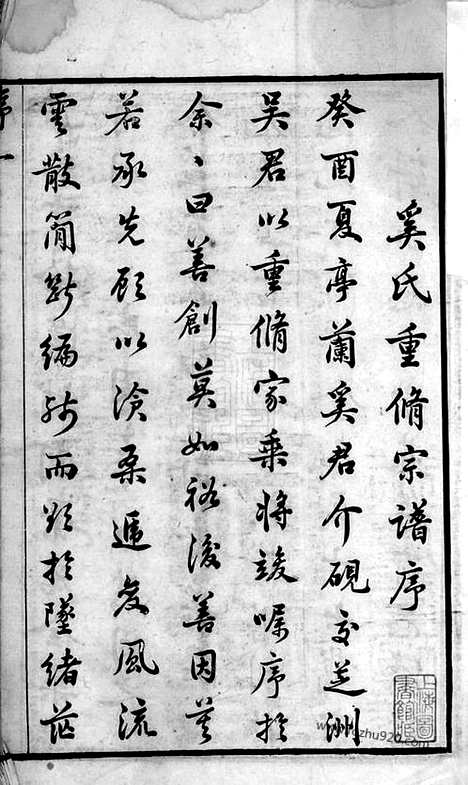 奚氏重脩宗譜序
癸酉夏亭蘭奚君介硯交芝洲
吳君以重脩家乘將竣囑序於
余、曰善創莫如裕後善因莫
若承先顧以滄桑遞變風流
雲散簡斷編殘而欲於墜緒茫
序一
上海圖書館藏
www.gzhu920.com